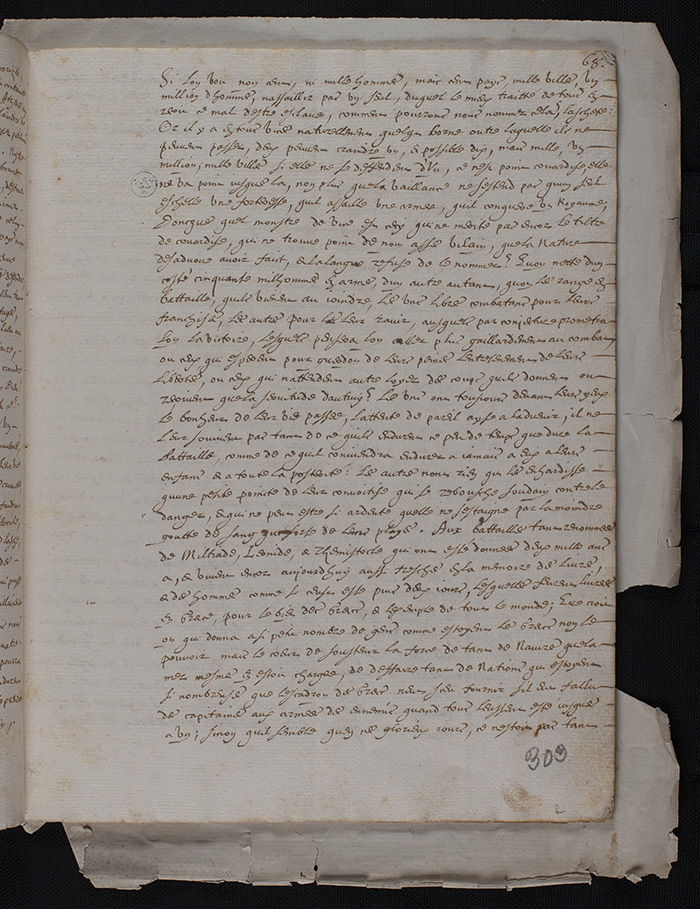 68.
Si l'on voit non cent, ni mille hommes, mais cent pays, mille villes, un
million d'hommes, n'assaillir pas un seul, duquel le mieux traitté de tous en
reçoit ce mal d'estre esclave, comment pourrons nous nommer cela, lascheté?
Or il y a en tous vices naturellement quelque borne outre laquelle ils ne
peuvent passer, deux peuvent craindre un, & possible dix, mais mille, un
million, mille villes si elles ne se deffendent d'un, ce n'est point couardise, elle
ne va point jusque là, non plus que la vaillance ne s'estend pas qu'un seul
eschelle une forteresse, qu'il assaille une armee, qu'il conquere un Royaume;
Doncques quel monstre de vice est cecy qui ne merite pas encor le tiltre
de couardise, qui ne trouve point de nom assé vilain, que la Nature
desadvoue avoir fait, & la langue refuse de le nommer? Qu'on mette d'un
costé cinquante mil hommes en armes, d'un autre autant, qu'on les range en
battaille, qu'ils viennent au joindre, les uns libres combatans pour leur
franchise, les autres pour la leur ravir, ausquels par conjecture promettra
l'on la victoire, lesquels pensera l'on aller plus gaillardement au combat
ou ceux qui esperent pour guerdon de leurs peines l'entretenement de leur
liberté, ou ceux qui n'attendent autre loyer des coups qu'ils donnent ou
reçoivent que la servitude d'autruy? Les uns ont tousjours devant leurs yeux
le bonheur de leur vie passée, l'attente de pareil ayse a l'advenir, il ne
leur souvient pas tant de ce qu'ils endurent ce peu de temps que dure la
battaille, comme de ce qu'il conviendra endurer a jamais a eux a leurs
enfans & a toute la posterité: Les autres n'ont rien qui les enhardisse
qu'une petite pointe de leur convoitise qui se rebousche soudain contre le
danger, & qui ne peut estre si ardente qu'elle ne s'estaigne par la moindre
goutte de sang qui sorte de leurs playes. Aux battailles tant renommees
de Miltiade, Leonide, & Themistocle qui ont esté données deux mille ans
a, & vivent encor aujourdhuy aussi fresches en la memoire des livres,
& des hommes comme si c'eust esté puis deux jours, lesquelles furent livrées
en Grece, pour le bien des Grecs, & l'exemple de tout le monde; Que croit
on qui donna a si petit nombre de gens comme estoyent les Grecs non le
pouvoir mais le coeur de soustenir la force de tant de Navires que la
mer mesme en estoit chargée, de deffaire tant de Nations qui estoyent
si nombreuses que l'escadron des Grecs n'eust sceu fournir s'il eut fallu
de capitaines aux armées des ennemis quand tous l'eussent esté jusque
a un; sinon qu'il semble qu'en ces glorieux jours, ce n'estoit pas tant
303